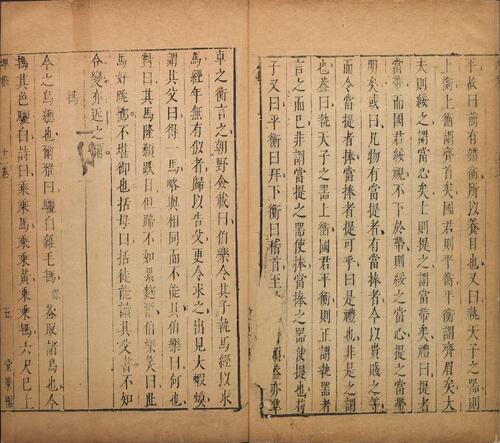 平故曰前有錯衡所以養目也曰執天子之器則
上衡上衡謂齊首矣國君則平衡平衡謂齊眉矣大
夫則綏之謂當心矣士則提之謂當帶矣禮曰提者
當帶而國君綏視不下於帶則綏之當心提之當帶
明矣或曰凡物有當提者有當捧者今以貴賤之等
而令當提者捧當捧者提可乎曰是禮也非是之謂
也蓋曰執天子之器上衡國君平衡則正謂執器者
言之而已非謂當提之器使捧當捧之器使提也荀
子又曰平衡曰拜下衡曰稽首至顙蓋亦準
車之衡言之朝野僉載曰伯樂令其子執馬經以求
馬經年無有似者歸以告父更令求之出見大蝦蟆
謂其父曰得一馬略與相同而不能具伯樂曰何也
對曰其馬隆顱跌目但蹄不如累麴爾伯樂笑曰此
馬好跳躑不堪御也括母曰括徒能讀其父書不知
合變亦近之
駂
今之烏驄也爾雅曰驪白雜毛駂蓋取諸鳥也今
駂其色驪白詩曰乘乘馬乘乘黃乘乘駂六尺已上
埤雅 十二卷 五 堂策檻